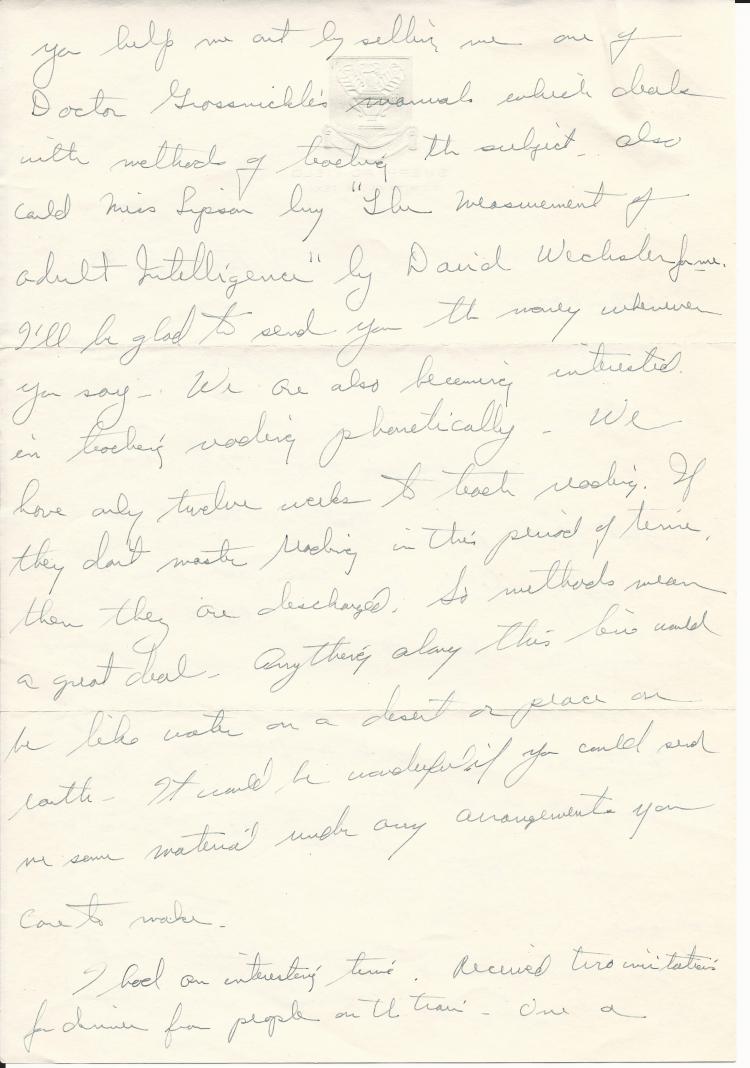 you help me out by selling me one of
Doctor Grossnickle's manuals which deals
with methods of teaching the subject - also
could Miss Lipson buy "The Measurement of
adult Intelligence" by David Wechsler for me.
I'll be glad to send you the money whenever
you say - We are also becoming interested
in teaching reading phonetically - We
have only twelve weeks to teach reading. If
they don't master reading in this period of time,
then they are discharged. So methods mean
a great deal - Anything along this line would
be like water on a desert or peace on
earth - It would be wonderful if you could send
me some material under any arrangements you
care to make -
I had an interesting time. Received two invitations
for dinner from people on the train - One a